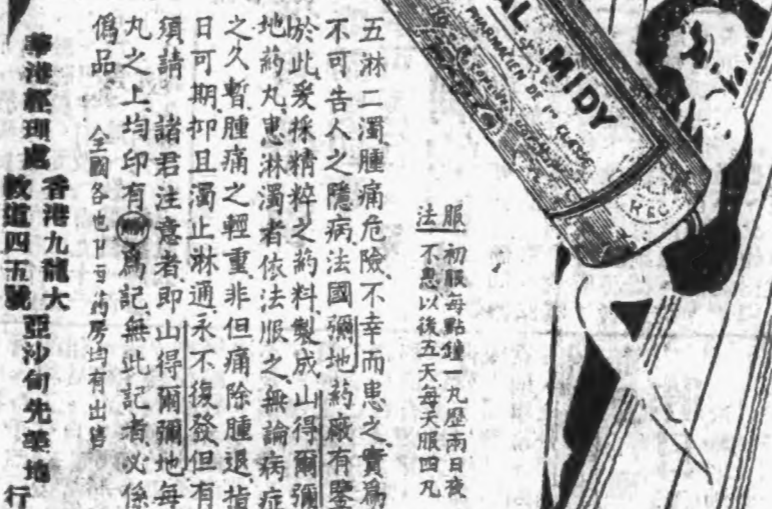 AL MIDY
PHARMACIEN DE 1re CLASSE
服法
初服每點鐘一丸歷兩日夜
不息以後五天每天服四丸
五淋二濁腫痛危險不幸而患之實爲
不可告人之隱病法國彌地葯廠有鑒
於此爰採精粹之葯料製成山得爾彌
地葯丸患淋濁者依法服之無論病症
之久暫腫痛之輕重非但痛除腫退指
日可期抑且濁止淋通永不復發但有
須請 諸君注意者即山得爾彌地每
丸之上均印有MIDY爲記無此記者必係
僞品
全國各葯房均有出售
華港經理處 香港九龍大
道四五號 亞沙甸先 地行